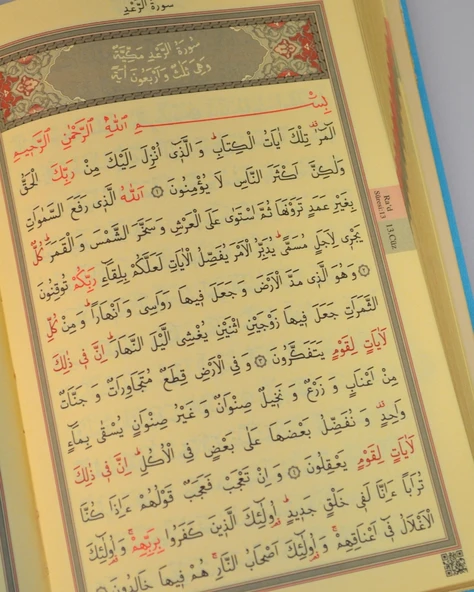 سورة الرّعد
سُورَةُ الرَّعْدِ مَكِّيَّةٌ
وَهِيَ ثَلٰثٌ وَاَرْبَعُونَ اٰيَةً
بِسْــــمِ اللّٰهِ الرَّحْمٰنِ الرَّحِيمِ
الٓمٓرٰ تِلْكَ اٰيَاتُ الْكِتَابِ وَالَّذٖٓى اُنْزِلَ اِلَيْكَ مِنْ رَبِّكَ الْحَقُّ
وَلٰكِنَّ اَكْثَرَ النَّاسِ لَا يُؤْمِنُونَ ١ اَللّٰهُ الَّذٖى رَفَعَ السَّمٰوَاتِ
بِغَيْرِ عَمَدٍ تَرَوْنَهَا ثُمَّ اسْتَوٰى عَلَى الْعَرْشِ وَسَخَّرَ الشَّمْسَ وَالْقَمَرَ كُلٌّ
يَجْرٖى لِاَجَلٍ مُسَمًّى يُدَبِّرُ الْاَمْرَ يُفَصِّلُ الْاٰيَاتِ لَعَلَّكُمْ بِلِقَٓاءِ رَبِّكُمْ تُوقِنُونَ
٢ وَهُوَ الَّذٖى مَدَّ الْاَرْضَ وَجَعَلَ فٖيهَا رَوَاسِىَ وَاَنْهَارًا وَمِنْ كُلِّ
الثَّمَرَاتِ جَعَلَ فٖيهَا زَوْجَيْنِ اثْنَيْنِ يُغْشِى الَّيْلَ النَّهَارَ اِنَّ فٖى ذٰلِكَ
لَاٰيَاتٍ لِقَوْمٍ يَتَفَكَّرُونَ ٣ وَفِى الْاَرْضِ قِطَعٌ مُتَجَاوِرَاتٌ وَجَنَّاتٌ
مِنْ اَعْنَابٍ وَزَرْعٌ وَنَخٖيلٌ صِنْوَانٌ وَغَيْرُ صِنْوَانٍ يُسْقٰى بِمَٓاءٍ
وَاحِدٍ وَنُفَضِّلُ بَعْضَهَا عَلٰى بَعْضٍ فِى الْاُكُلِ اِنَّ فٖى ذٰلِكَ
لَاٰيَاتٍ لِقَوْمٍ يَعْقِلُونَ ٤ وَاِنْ تَعْجَبْ فَعَجَبٌ قَوْلُهُمْ ءَاِذَا كُنَّا
تُرَابًا ءَاِنَّا لَفٖى خَلْقٍ جَدٖيدٍ اُولٰٓئِكَ الَّذٖينَ كَفَرُوا بِرَبِّهِمْ وَاُولٰٓئِكَ
الْاَغْلَالُ فٖٓى اَعْنَاقِهِمْ وَاُولٰٓئِكَ اَصْحَابُ النَّارِ هُمْ فٖيهَا خَالِدُونَ ٥
Ra'd
Sûresi 13
13.Cüz